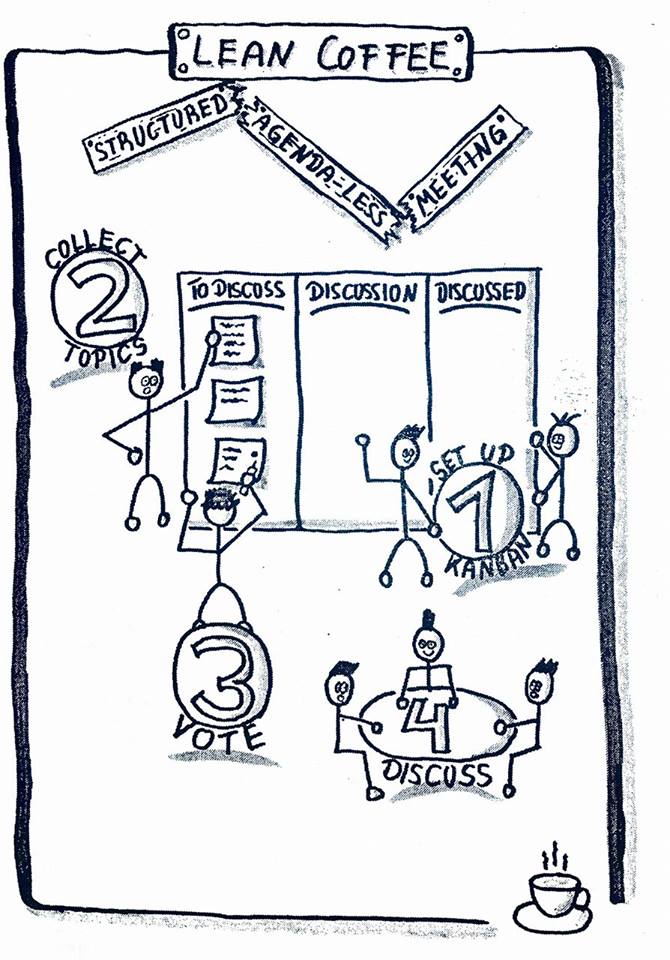 LEAN COFFEE
STRUCTURED
AGENDA-LESS
MEETING
COLLECT
2
TOPICS
TO DISCUSS
DISCUSSION
DISCUSSED
SET UP
1
KANBAN
3
VOTE
4
DISCUSS